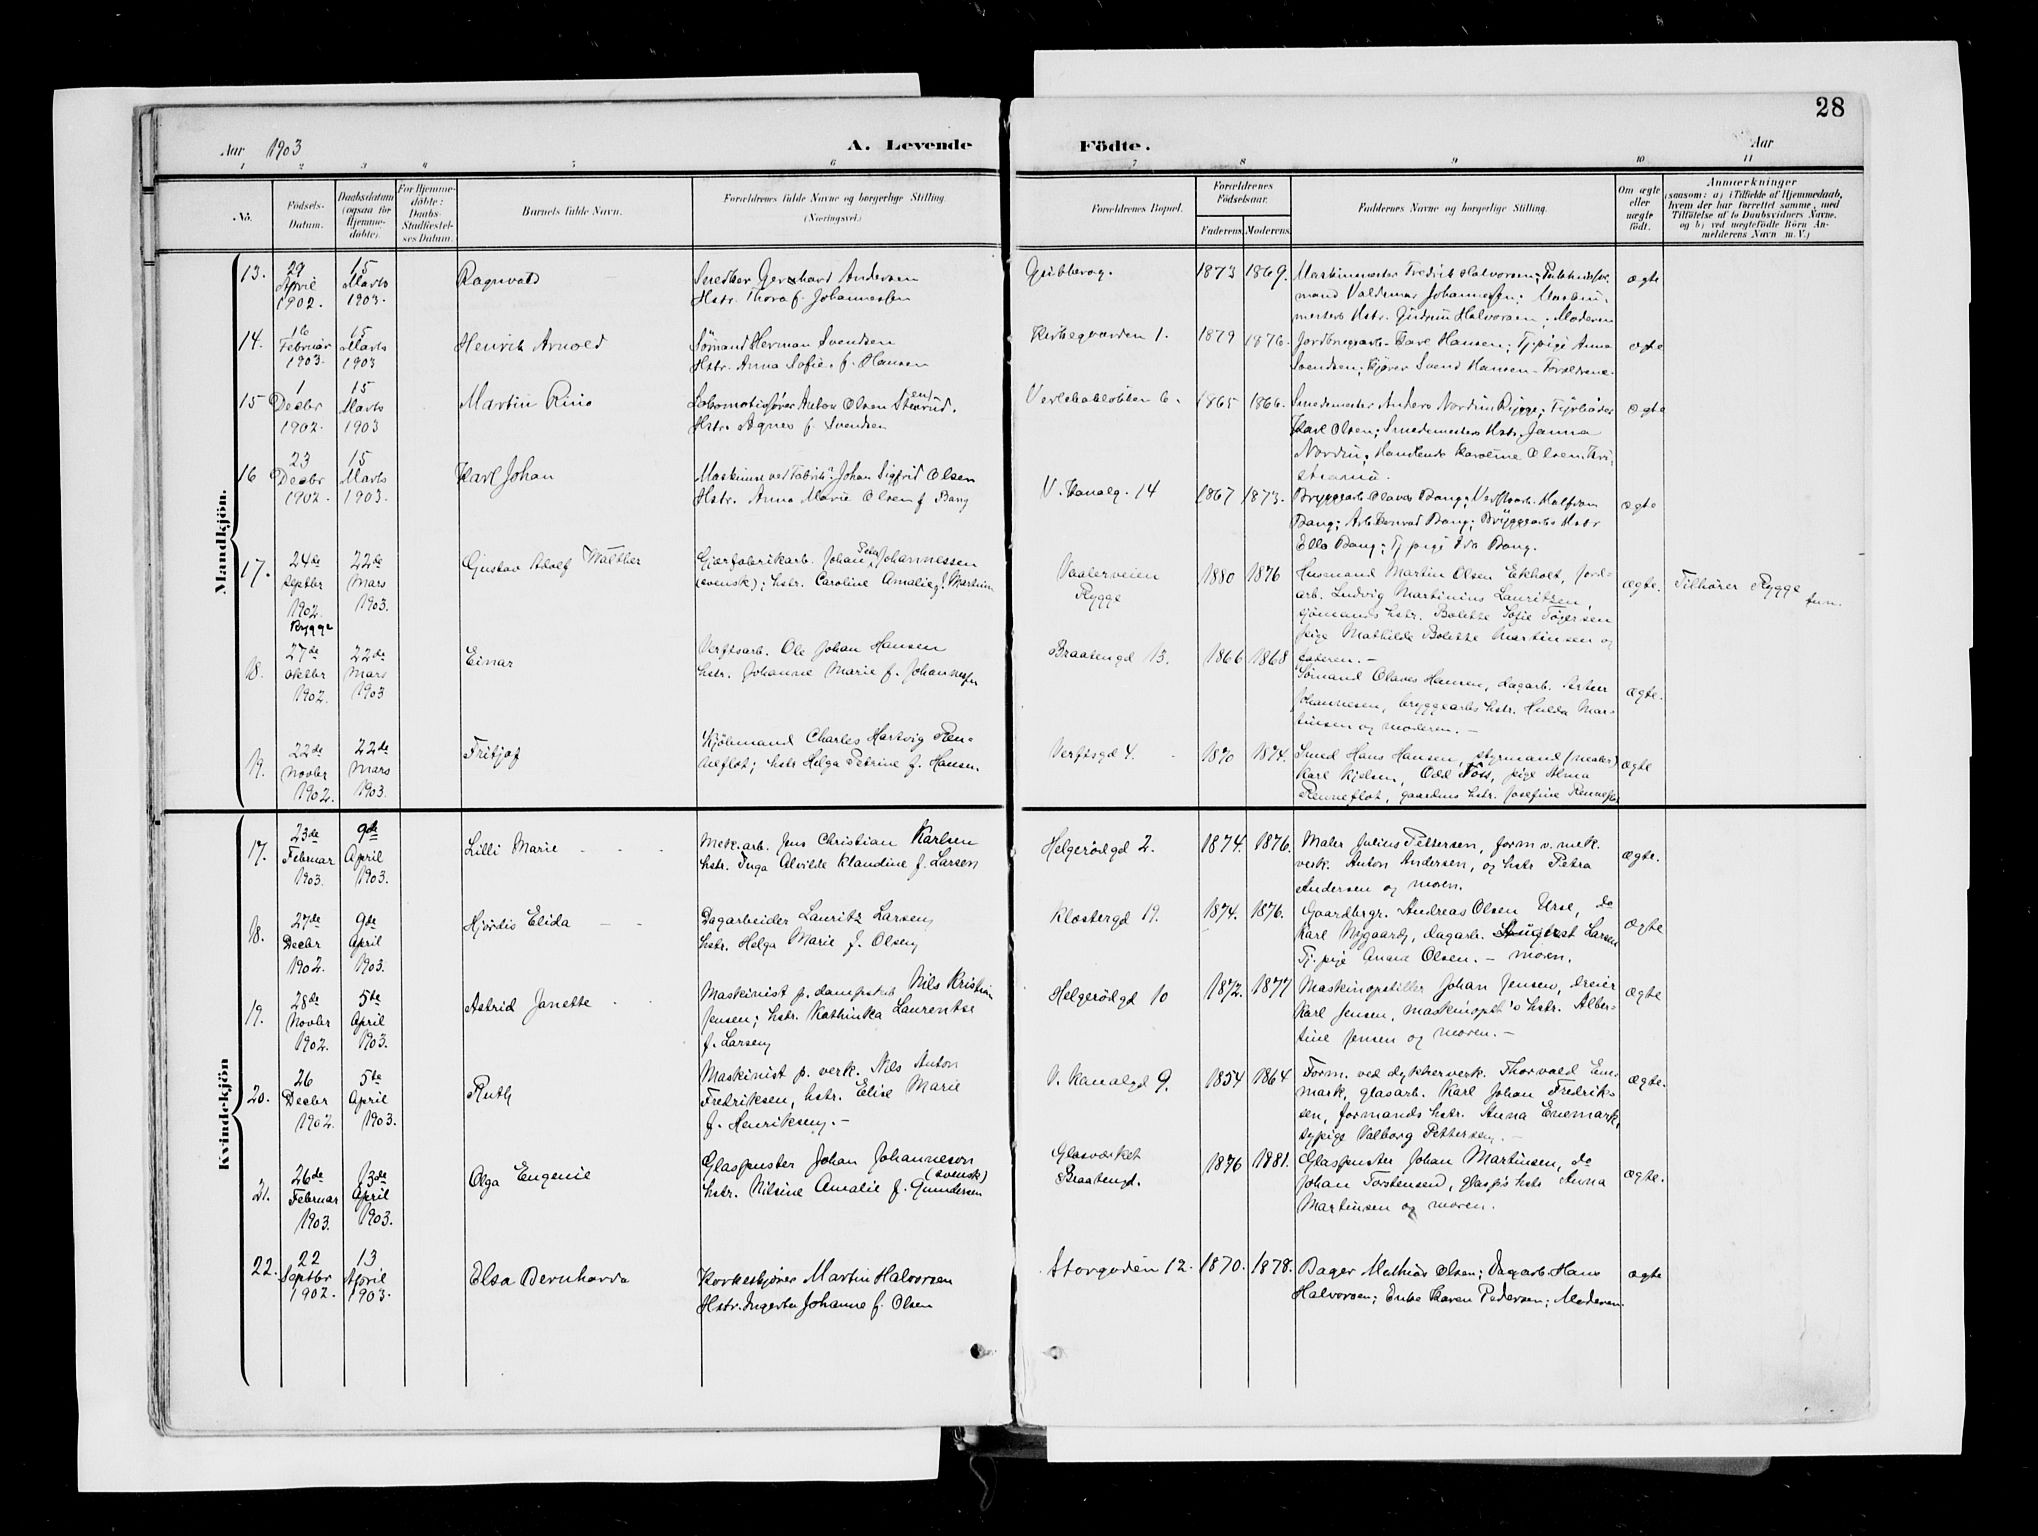 28
Aar 1903
A. Levende
Födte.
Aar
1 2 3 4 5 6 7 8 9 10 11
No.
Födsels-
Datum.
Daabsdatum
(ogsaa for
Hjemme-
döbte).
For Hjemme-
döbte:
Daabs-
Stadfæstel-
ses Datum.
Barnets fulde Navn.
Forældrenes fulde Navne og borgerlige Stilling.
(Næringsvei.)
Forældrenes Bopæl.
Forældrenes
Födselsaar.
Faderens. Moderens.
Faddernes Navne og borgerlige Stilling.
Om ægte
eller
uægte
födt.
Anmærkninger
(saasom: a) i Tilfælde af Hjemmedaab,
hvem der har forrettet samme, med
Tilföielse af to Daabsvidners Navne.
og b) ved uægtefödte Börn An-
melderens Navn m. V.)
Mandkjön.
13.
29
April
1902.
15
Marts
1903.
Ragnvald
Snedker Gerhard Andersen
Hstr. Thora f. Johannesen
1873 1869.
Maskinmester Fredrik Halvorsen;
mand Valdemar Johannesen; Maskin-
mesters Hstr. Gudrun Halvorsen; Moderen
ægte
14.
16
Februar
1903.
15
Marts
1903
Henrik Arnold
Sømand Herman Svendsen
Hstr. Anna Sofie f. Hansen
Kirkegaarden 1.
1879 1876.
Jordbrugsarb. Karl Hansen; Tj.pige Anna
Svendsen; Kjører Svend Hansen - Forældrene.
ægte
15
1
Decbr
1902.
15
Marts
1903
Martin Rino
Lokomotivfører Anton Olsen Stensrud.
Hstr. Agnes f. Svendsen
6.
1865 1866.
Smedemester Anders Nordin Rygge; Fyrbøder
Karl Olsen; Smedemesters Hstr. Janna
Nordin; Karoline Olsen
ægte
16
23
Decbr
1902.
15
Marts
1903.
Karl Johan
Johan Sigfrid Olsen
Hstr. Anna Marie Olsen f. Bang
V. Kanalg. 14
1867 1873.
Bryggearb. Olaves Bang; Halfdan
Bang; Arb. Konrad Bang; Bryggearbs Hstr
Ella Bang; Tj.pige Ida Bang.
ægte
17.
24de
Septbr
1902.
Rygge
22de
Mars
1903.
Gustav Adolf Walther
Gjærfabrikarb. Johan Peter Johannessen
(svensk); hstr. Caroline Amalie f. Martinsen
Vaalerveien
Rygge
1880 1876
Husmand Martin Olsen Ekholt, jord-
arb. Ludvig Martinius Lauritzen,
sjømands hstr. Bolette Sofie Torgersen
pige Mathilde Bolette Martinsen og
faderen. -
ægte.
Tilhører Rygge
18.
27de
oktbr
1902.
22de
Mars
1903
Einar
Verftsarb. Ole Johan Hansen
hstr. Johanne Marie f. Johannesen
Braatengd 13.
1866 1868
Sømand Olaves Hansen, dagarb. Asker
Johannesen, bryggearbs hstr. Hulda Mar-
tinsen og moderen. -
ægte.
19.
22de
Novbr
1902.
22de
Mars
1903.
Fritjof
Kjøbmand Charles Hartvig Ren-
neflot; hstr Helga Petrine f. Hansen.
Verftsgd 4.
1870 1874.
Smed Hans Hansen, styrmand
Karl Nielsen, Odd Foss, pige Alma
Renneflot, gaardms hstr. Josefine Renneflot
ægte
Kvindekjön
17.
23de
Februar
1903.
9de
April
1903.
Lilli Marie
Mek.arb. Jens Christian Karlsen
hstr. Inga Alvilde Klaudine f. Larsen
Helgerødgd 2.
1874. 1876.
Maler Julius Pettersen, form v. mek.
verk. Anton Andersen, og hstr Petra
Andersen og moren.
ægte.
18.
27de
Decbr
1902.
9de
April
1903.
Hjørdis Elida
Dagarbeider Lauritz Larsen
hstr. Helga Marie f. Olsen
Klostergd 19.
1874. 1876.
Gaardbrgr. Andreas Olsen Urse, do
Karl Nygaard, dagarb. August Larsen
Tj. pige Anna Olsen. - moren.
ægte
19.
28de
Novbr
1902.
5te
April
1903.
Astrid Janette
Maskinist p. dampskib Nils Kristian
Jensen; hstr. Kathinka Laurentse
f. Larsen
Helgerødgd 10
1872. 1877
Maskinopstiller Johan Jensen, dreier
Karl Jensen, maskinopst's hstr. Alber-
tine Jensen og moren. -
ægte
20.
26
Decbr
1902.
5te
April
1903.
Ruth
Maskinist p. verk. Nils Anton
Fredriksen, hstr. Elise Marie
f. Henriksen. -
V. Kanalgd 9.
1854 1864
Form. ved dykkerverk. Thorvald Ene-
mark, glasarb. Karl Johan Fredrik-
sen, formands hstr. Anna Enemark,
sypige Valborg Pettersen. -
ægte.
21.
26de
Februar
1903.
13de
April
1903.
Olga Eugenie
Glaspuster Johan Johanneson
(svensk)
hstr. Nilsine Amalie f. Gundersen
Glasværket
Braatengd.
1876 1881.
Glaspuster Johan Martinsen, do
Johan Torstensen, glasp's hstr Anna
Martinsen og moren.
ægte.
22.
22
Septbr
1902.
13
April
1903.
Elsa Bernharda
Korkeskjører Martin Halvorsen
Hstr. Ingerta Johanne f. Olsen
Storgaden 12.
1870. 1878.
Bager Mathias Olsen; Dagarb. Hans
Halvorsen; Enke Karen Pedersen; Moderen.
ægte